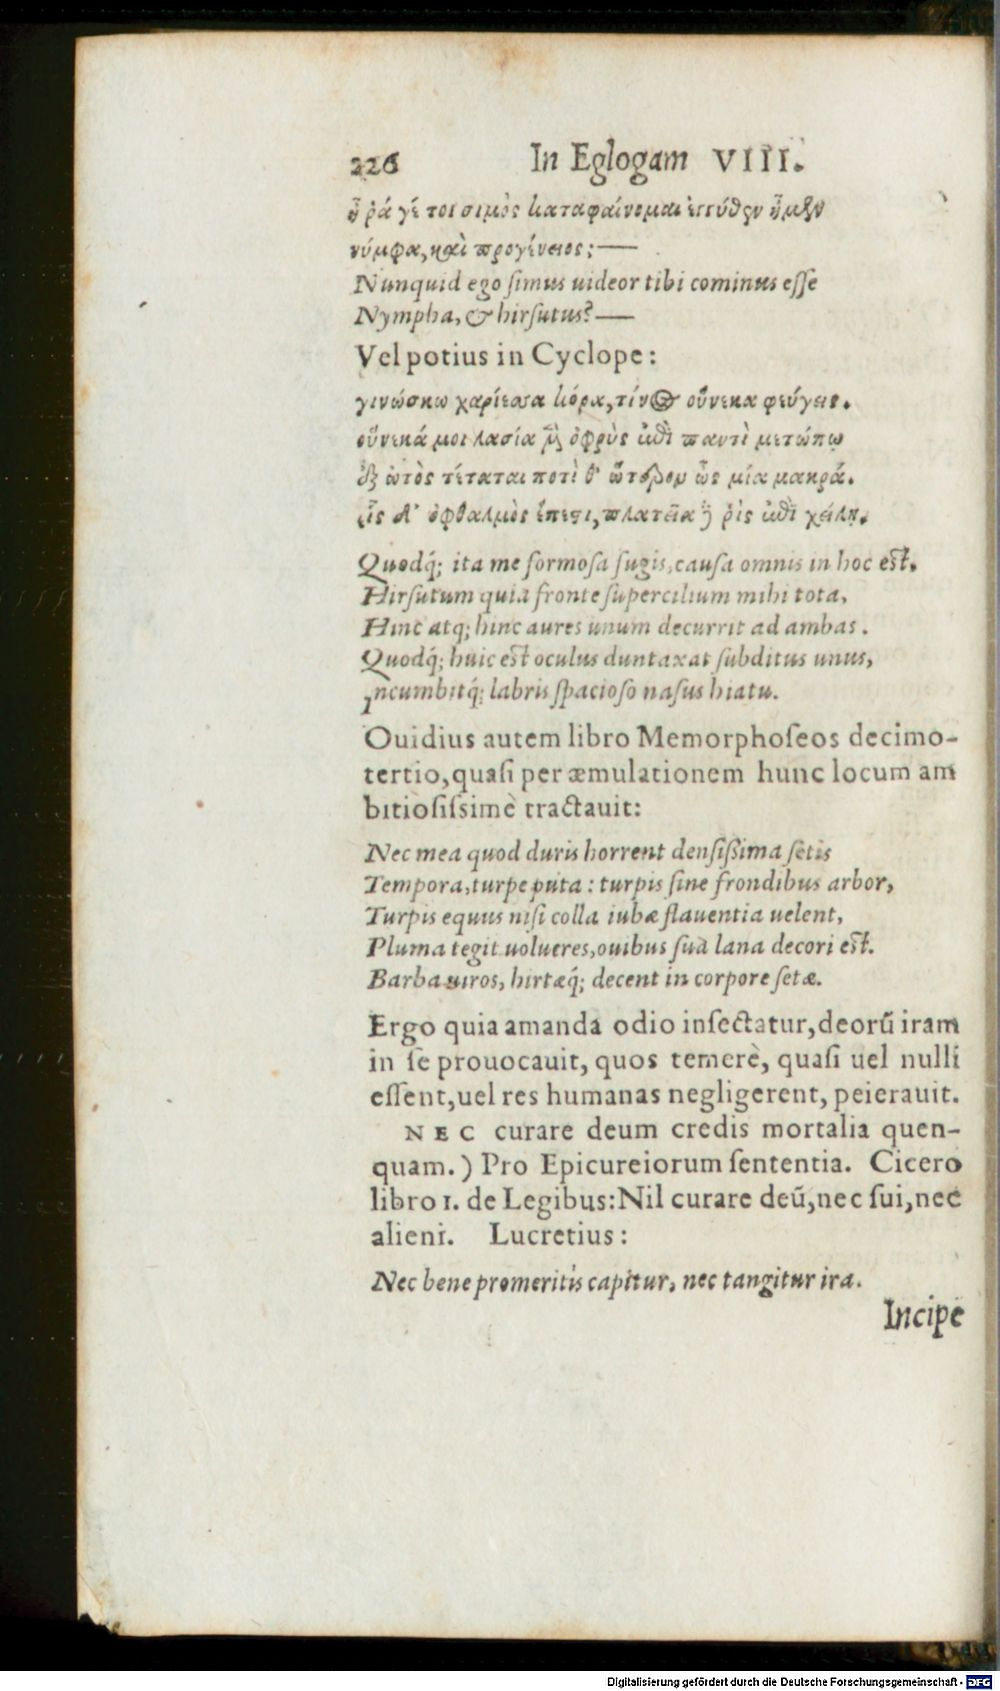 226 In Eglogam VIII.
ἦ ῥά γέ τοι σιμὸς καταφαίνομαι ἐγγύθεν ἦμεν
νύμφα, καὶ προγένειος; —
Nunquid ego ſimus uideor tibi cominus eſſe
Nympha, & hirſutus? —
Vel potius in Cyclope:
γινώσκω χαρίεσσα κόρα, τίνος οὕνεκα φεύγεις.
οὕνεκά μοι λασία μὲν ὀφρὺς ἐπὶ παντὶ μετώπῳ
ἐξ ὠτὸς τέταται ποτὶ θ' ὥτερον ὦς μία μακρά.
εἷς δ' ὀφθαλμὸς ἔπεστι, πλατεῖα δὲ ῥὶς ἐπὶ χείλῃ.
Quodq́; ita me formoſa fugis, cauſa omnis in hoc eſt.
Hirſutum quia fronte ſupercilium mihi tota,
Hinc atq; hinc aures unum decurrit ad ambas.
Quodq́; huic eſt oculus duntaxat ſubditus unus,
Incumbitq́; labris ſpacioſo naſus hiatu.
Ouidius autem libro Memorphoſeos decimo-
tertio, quaſi per æmulationem hunc locum am
bitioſiſsimè tractauit:
Nec mea quod duris horrent denſißima ſetis
Tempora, turpe puta: turpis ſine frondibus arbor,
Turpis equus niſi colla iubæ flauentia uelent,
Pluma tegit uolueres, ouibus ſua lana decori eſt.
Barba uiros, hirtæq́; decent in corpore ſetæ.
Ergo quia amanda odio inſectatur, deorũ iram
in ſe prouocauit, quos temerè, quaſi uel nulli
eſſent, uel res humanas negligerent, peierauit.
NEC curare deum credis mortalia quen-
quam.) Pro Epicureiorum ſententia. Cicero
libro 1. de Legibus: Nil curare deũ, nec ſui, nec
alieni. Lucretius:
Nec bene promeritis capitur, nec tangitur ira.
Incipe
Digitalisierung gefördert durch die Deutsche Forschungsgemeinschaft - DFG